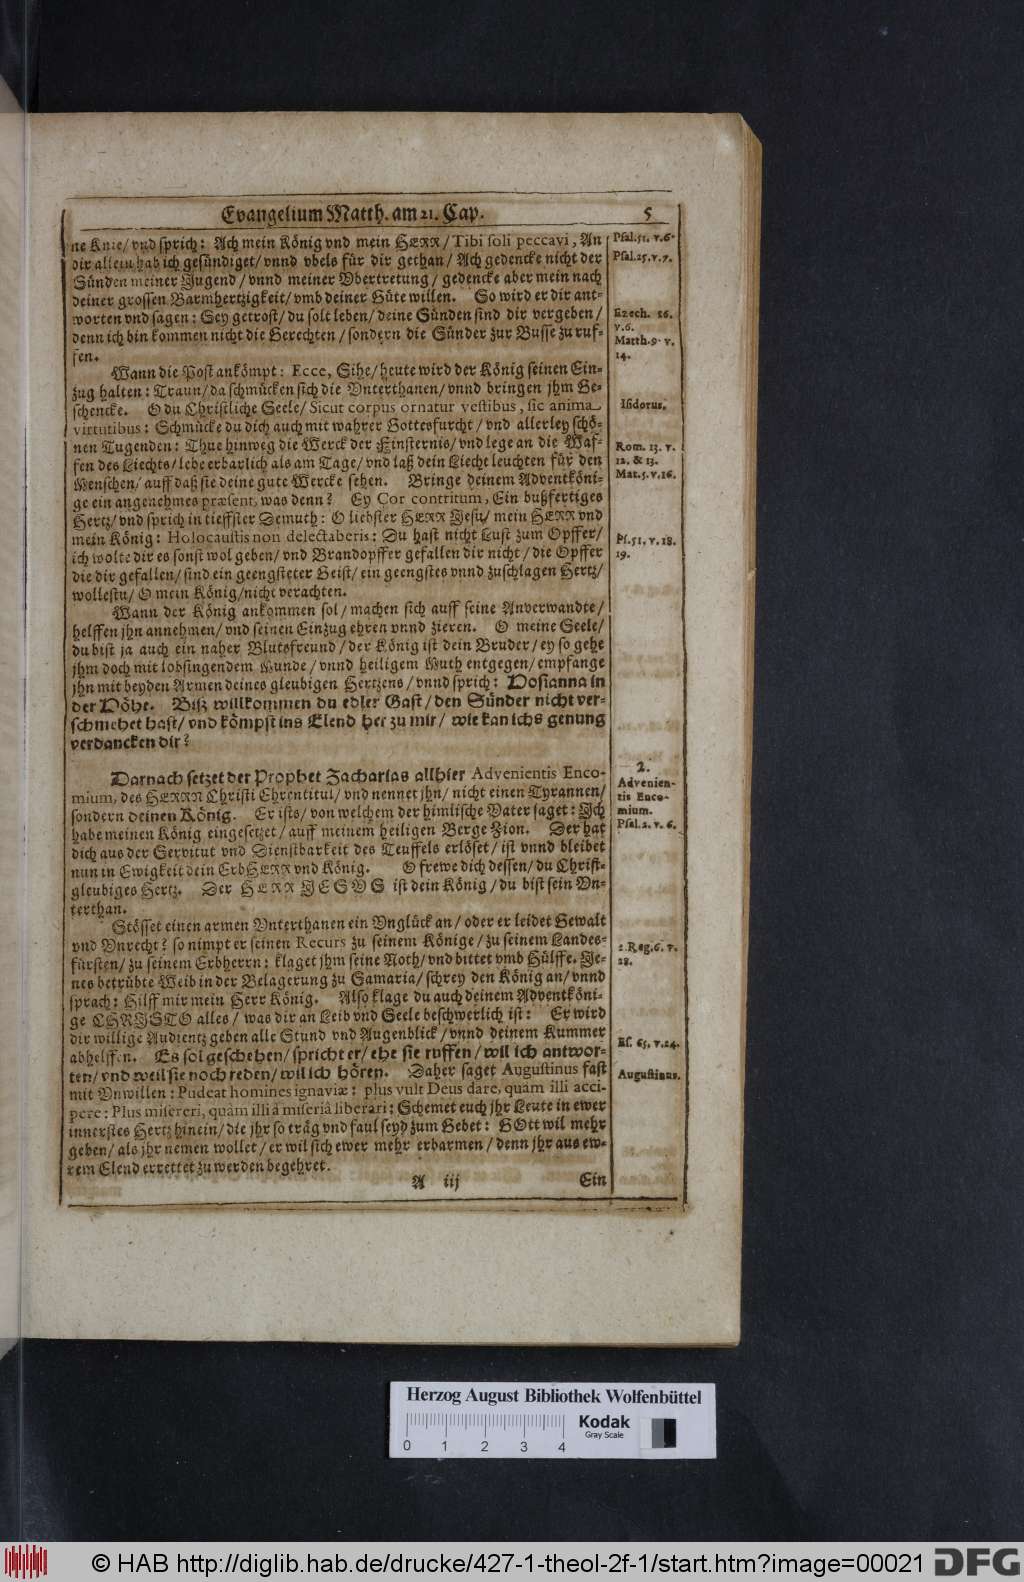 Evangelium Matth. am 21. Cap. 5
ne Knie/ vnd sprich: Ach mein König vnd mein HERR/ Tibi soli peccavi, An
dir allein hab ich gesündiget/ vnnd vbels für dir gethan/ Ach gedencke nicht der
Sünden meiner Jugend/ vnnd meiner Vbertretung/ gedencke aber mein nach
deiner grossen Barmhertzigkeit/ vmb deiner Güte willen. So wird er dir ant-
worten vnd sagen: Sey getrost/ du solt leben/ deine Sünden sind dir vergeben/
denn ich bin kommen nicht die Gerechten/ sondern die Sünder zur Busse zu ruf-
fen.
Psal. 51. v. 6.
Psal. 25. v. 7.
Ezech. 16.
v. 6.
Matth. 9. v.
14.
Wann die Post ankömpt: Ecce, Sihe/ heute wird der König seinen Ein-
zug halten: Traun/ da schmücken sich die Vnterthanen/ vnnd bringen jhm Ge-
schencke. O du Christliche Seele/ Sicut corpus ornatur vestibus, sic anima
virtutibus: Schmücke du dich auch mit wahrer Gottesfurcht/ vnd allerley schö-
nen Tugenden: Thue hinweg die Werck der Finsternis/ vnd lege an die Waf-
fen des Liechts/ lebe erbarlich als am Tage/ vnd laß dein Liecht leuchten für den
Menschen/ auff daß sie deine gute Wercke sehen. Bringe deinem Adventköni-
ge ein angenehmes præsent, was denn? Ey Cor contritum, Ein bußfertiges
Hertz/ vnd sprich in tieffster Demuth: O liebster HERR Jesu/ mein HERR vnd
mein König: Holocaustis non delectaberis: Du hast nicht Lust zum Opffer/
ich wolte dir es sonst wol geben/ vnd Brandopffer gefallen dir nicht/ die Opffer
die dir gefallen/ sind ein geengsteter Geist/ ein geengstes vnnd zuschlagen Hertz/
wollestu/ O mein König/ nicht verachten.
Isidorus.
Rom. 13. v.
12. & 13.
Mat. 5. v. 16.
Ps. 51. v. 18.
19.
Wann der König ankommen sol/ machen sich auff seine Anverwandte/
helffen jhn annehmen/ vnd seinen Einzug ehren vnnd zieren. O meine Seele/
du bist ja auch ein naher Blutsfreund/ der König ist dein Bruder/ ey so gehe
jhm doch mit lobsingendem Munde/ vnnd heiligem Muth entgegen/ empfange
jhn mit beyden Armen deines gleubigen Hertzens/ vnnd sprich: Hosianna in
der Höhe. Biß willkommen du edler Gast/ den Sünder nicht ver-
schmehet hast/ vnd kömpst ins Elend her zu mir/ wie kan ichs genung
verdancken dir?
Darnach setzet der Prophet Zacharias allhier Advenientis Enco-
mium, des HERRN Christi Ehrentitul/ vnd nennet jhn/ nicht einen Tyrannen/
sondern deinen König. Er ists/ von welchem der himlische Vater saget: Ich
habe meinen König eingesetzet/ auff meinem heiligen Berge Zion. Der hat
dich aus der Servitut vnd Dienstbarkeit des Teuffels erlöset/ ist vnnd bleibet
nun in Ewigkeit dein ErbHERR vnd König. O frewe dich dessen/ du Christ-
gleubiges Hertz. Der HERR JESVS ist dein König/ du bist sein Vn-
terthan.
2.
Advenien-
tis Enco-
mium.
Psal. 2. v. 6.
Stösset einen armen Vnterthanen ein Vnglück an/ oder er leidet Gewalt
vnd Vnrecht? so nimpt er seinen Recurs zu seinem Könige/ zu seinem Landes-
fürsten/ zu seinem Erbherrn: klaget jhm seine Noth/ vnd bittet vmb Hülffe. Je-
nes betrübte Weib in der Belagerung zu Samaria/ schrey den König an/ vnnd
sprach: Hilff mir mein Herr König. Also klage du auch deinem Adventköni-
ge CHRISTO alles/ was dir an Leib vnd Seele beschwerlich ist: Er wird
dir willige Audientz geben alle Stund vnd Augenblick/ vnnd deinem Kummer
abhelffen. Es sol geschehen/ spricht er/ ehe sie ruffen/ wil ich antwor-
ten/ vnd weil sie noch reden/ wil ich hören. Daher saget Augustinus fast
mit Vnwillen: Pudeat homines ignaviæ: plus vult Deus dare, quàm illi acci-
pere: Plus misereri, quàm illi à miseriâ liberari: Schemet euch jhr Leute in ewer
innerstes Hertz hinein/ die jhr so träg vnd faul seyd zum Gebet: GOtt wil mehr
geben/ als jhr nemen wollet/ er wil sich ewer mehr erbarmen/ denn jhr aus ew-
rem Elend errettet zu werden begehret.
2. Reg. 6. v.
28.
Es. 65. v. 24.
Augustinus.
A iij Ein
Herzog August Bibliothek Wolfenbüttel
0 1 2 3 4
Kodak
Gray Scale
© HAB http://diglib.hab.de/drucke/427-1-theol-2f-1/start.htm?image=00021
DFG